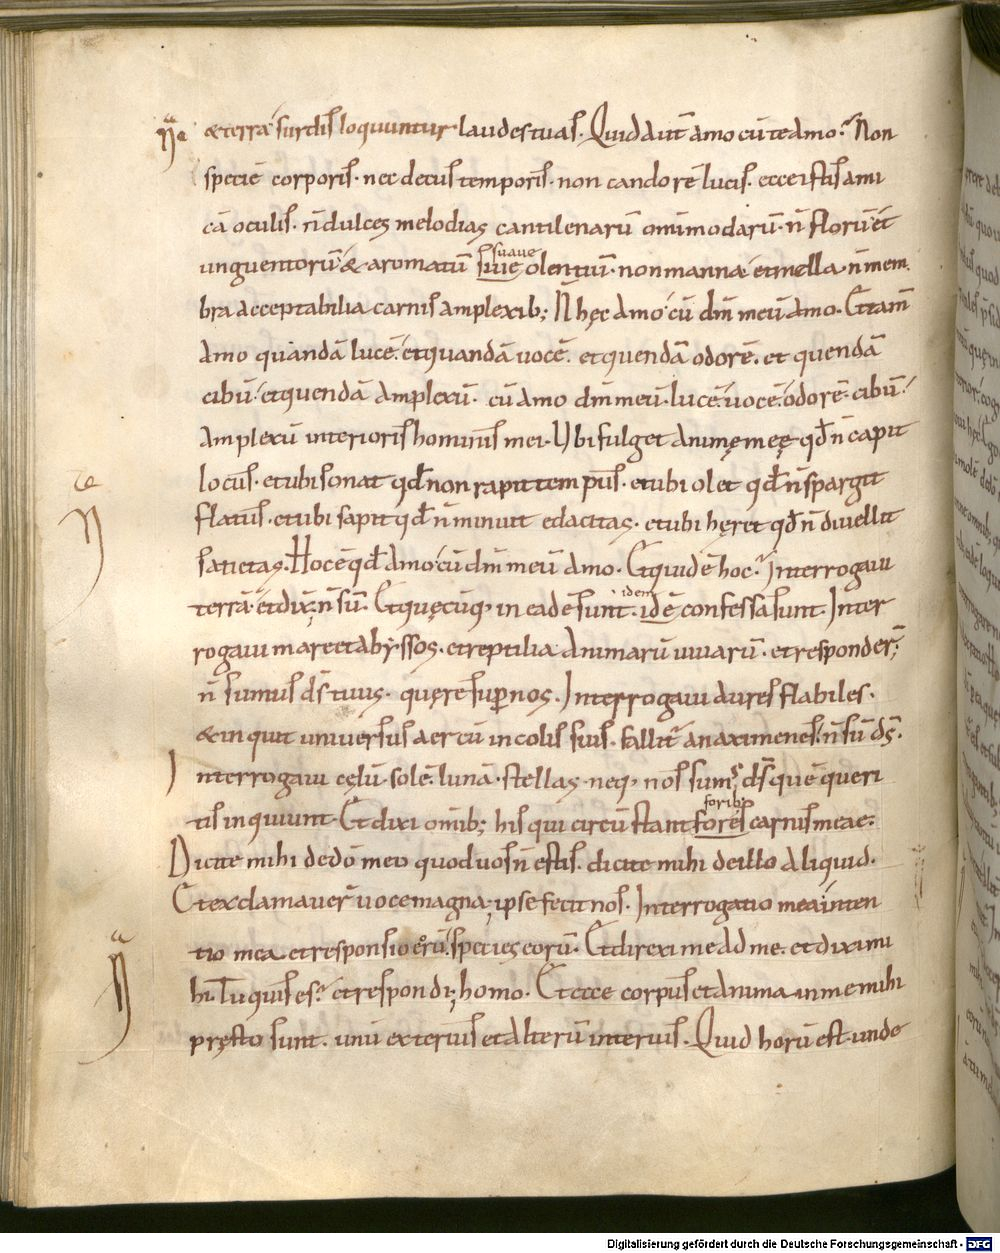 &terra surdis loquuntur laudes tuas. Quid aut̄ amo cū te amo? Non
speciē corporis. nec decus temporis. non candorē lucis. ecce istis ami
cā oculis. n̄ dulces melodias cantilenarū om̄imodarū. n̄ florū et
unguentorū & aromatū suaue
siue olentiū. non manna et mella. n̄ mem
bra acceptabilia carnis amplexib; N̄ hęc amo cū dm̄ meū amo. Et tam̄
amo quandā lucē. et quandā uocē. et quendā odorē. et quendā
cibū. et quendā amplexū. cū amo dm̄ meū. lucē. uocē. odorē. cibū.
amplexū interioris hominis mei. Ubi fulget animę meę qd̄ n̄ capit
locus. et ubi sonat qd̄ non rapit tempus. et ubi olet qd̄ n̄ spargit
flatus. et ubi sapit qd̄ n̄ minuit edacitas. et ubi hęret qd̄ n̄ diuellit
satietas. Hoc ē qd̄ amo cū dm̄ meū amo. Et quid ē hoc? Interrogaui
terrā et dix; n̄ sū. Et quęcūq; in eadē sunt. idem
idē confessa sunt. Inter
rogaui mare et abyssos. et reptilia animarū uiuarū. et responder̄;
n̄ sumus ds̄ tuus. quęre sup nos. Interrogaui aures flabiles.
& inquit uniuersus aer cū incolis suis. fallit̄ anaximenes. n̄ sū ds̄.
Interrogaui cęlū. solē. lunā. stellas. neq; nos sum; ds̄ quē queri
tis inquiunt. Et dixi om̄ib; his qui circū stant forib;
fores carnis meae.
Dicite mihi de dō meo quod uos n̄ estis. dicite mihi de illo aliquid.
Et exclamauer̄ uoce magna; ipse fecit nos. Interrogatio mea inten
tio mea et responsio eorū. species eorū. Et direxi me ad me. et dixi mi
hi. Tu quis es? et respondi; homo. Et ecce corpus et anima in me mihi
pręsto sunt. unū exterius et alterū interius. Quid horū est unde
Digitalisierung gefördert durch die Deutsche Forschungsgemeinschaft - DFG